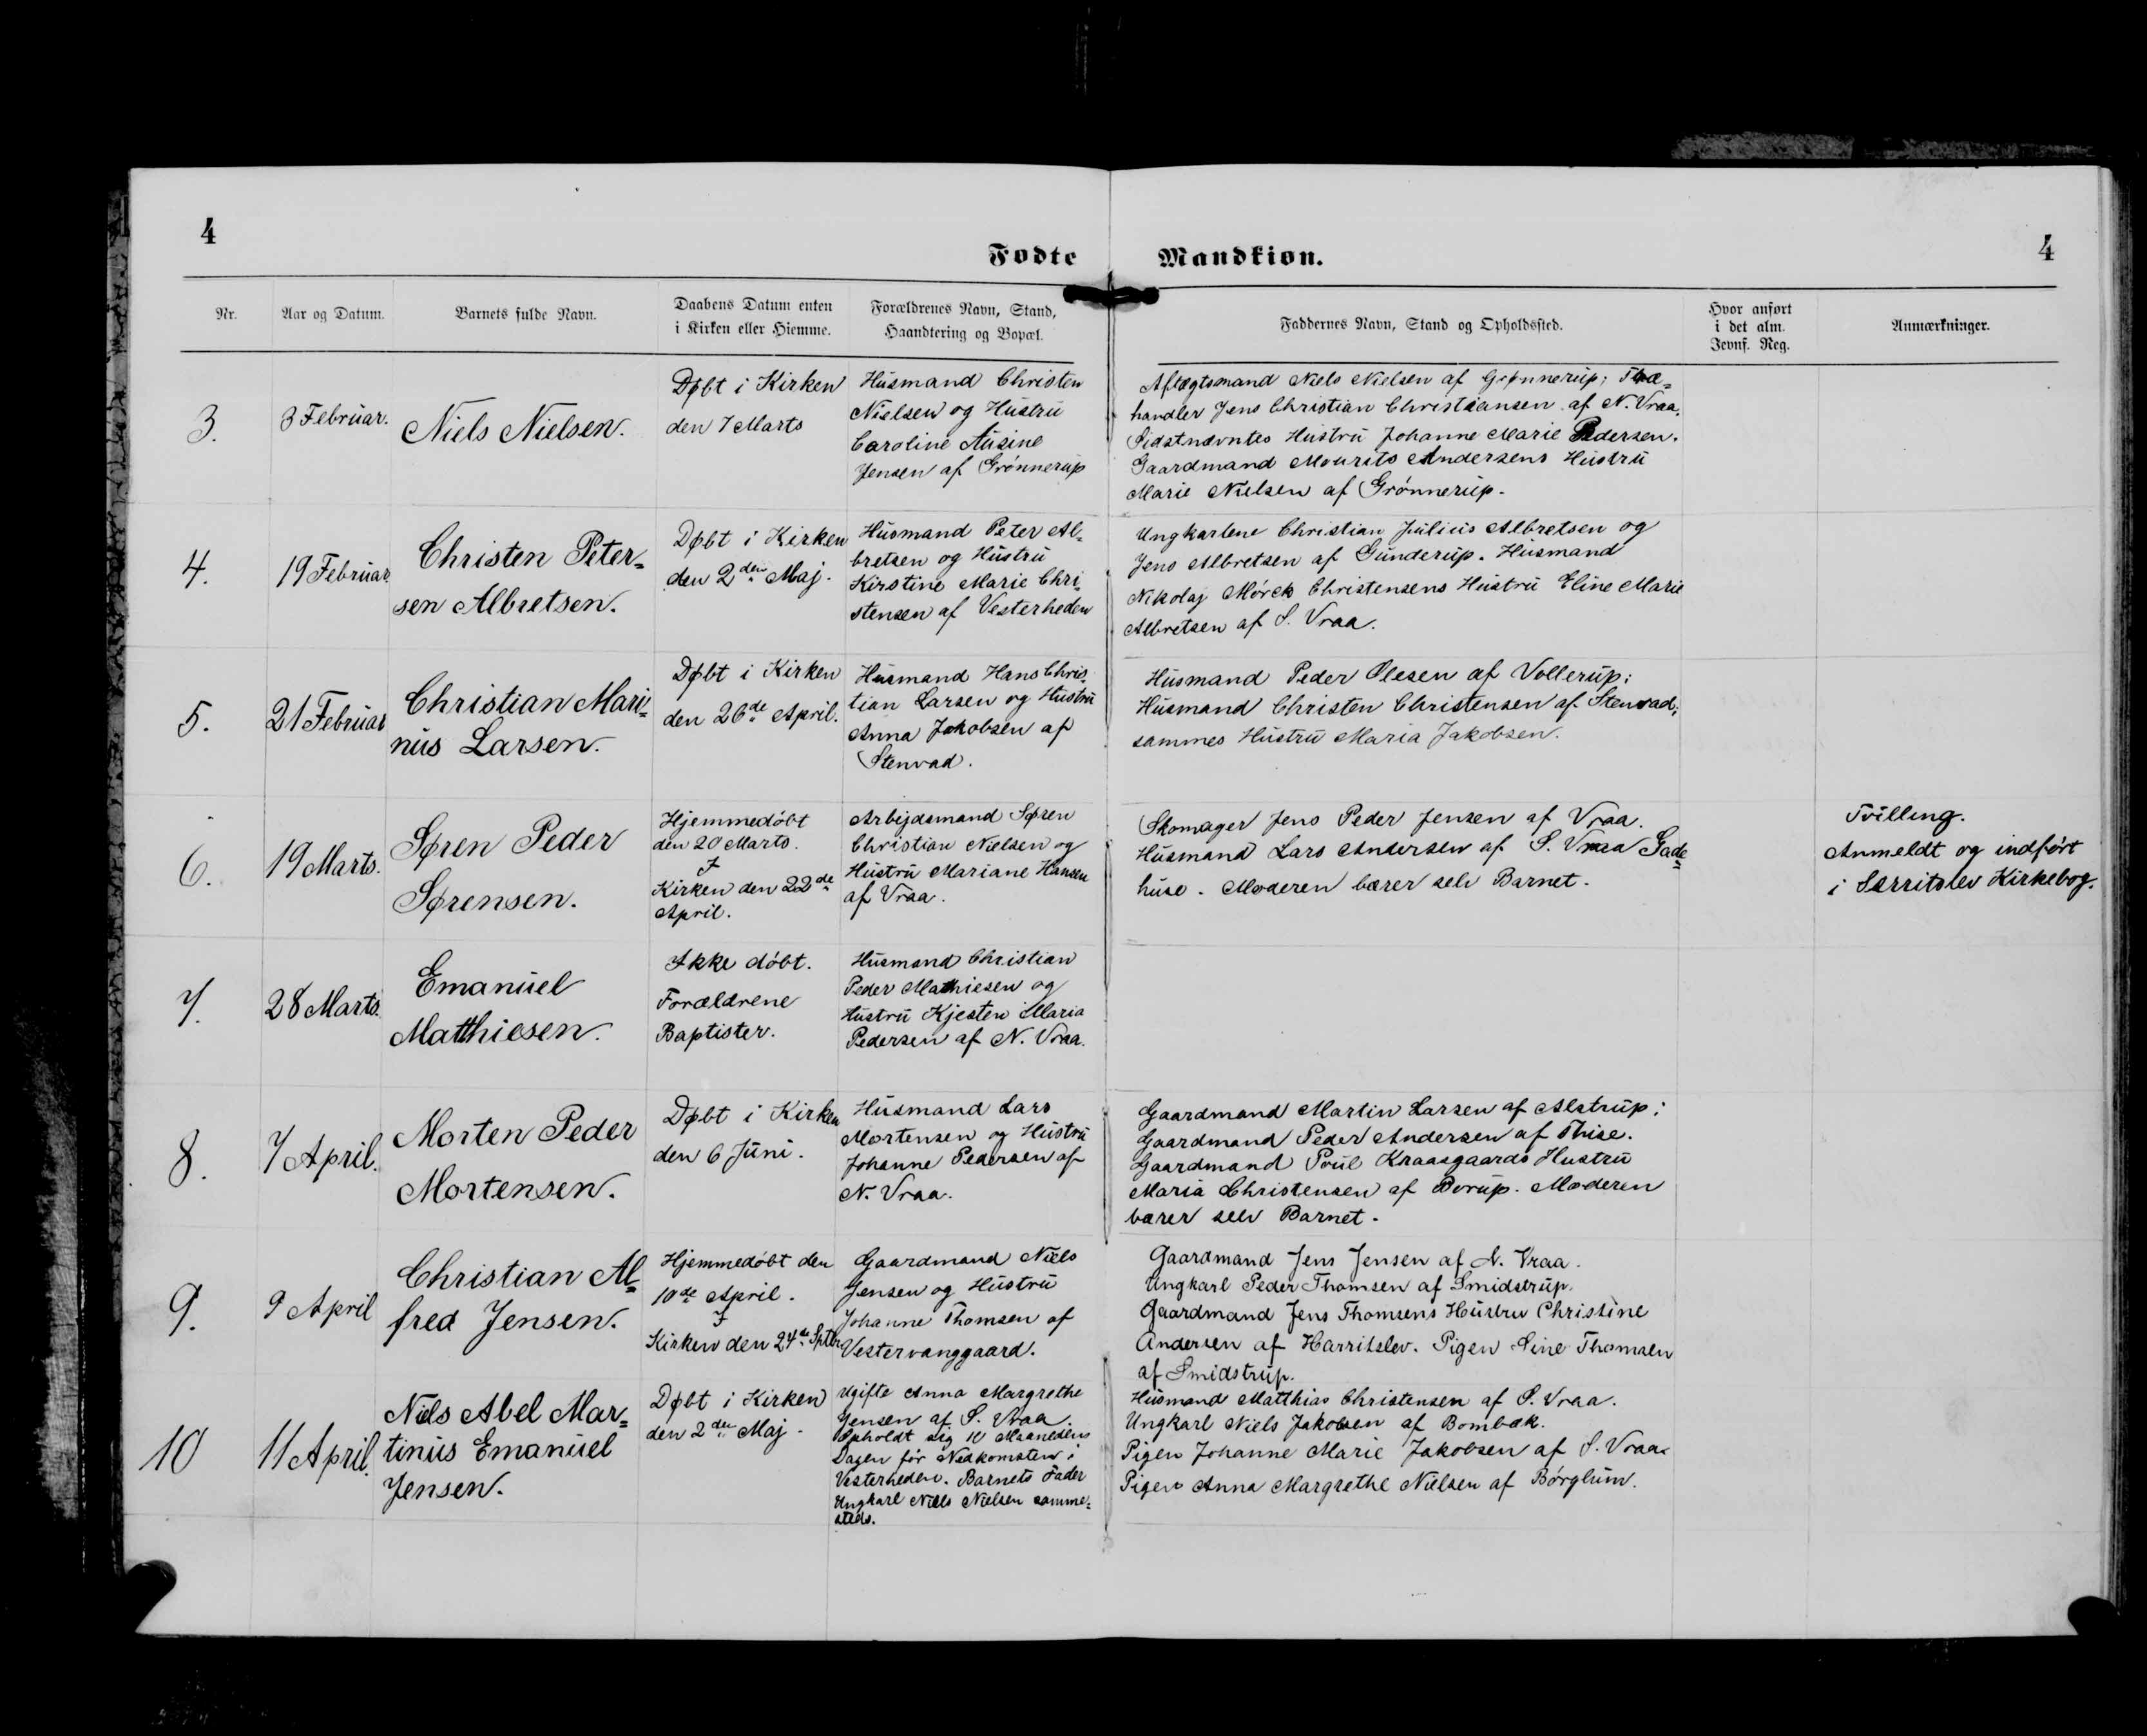 4
4
Fødte Mandkiøn.
Nr.
Aar og Datum.
Barnets fulde Navn.
Daabens Datum enten
i Kirken eller Hiemme.
Forældrenes Navn, Stand,
Haandtering og Bopæl.
Faddernes Navn, Stand og Opholdssted.
Hvor anført
i det alm.
Jevnf. Reg.
Anmærkninger.
3.
3 Februar.
Niels Nielsen.
Døbt i Kirken
den 7 Marts
Husmand Christen
Nielsen og Hustru
Caroline Ausine
Jensen af Grønnerup
Aflægtsmand Niels Nielsen af Grønnerup; Træ=
handler Jens Christian Christiansen af N. Vraa,
Sidstnævntes Hustru Johanne Marie Pedersen.
Gaardmand Mourits Andersens Hustru
Marie Nielsen af Grønnerup.
4.
19 Februar
Christen Peter=
sen Albretsen.
Døbt i Kirken
den 2den Maj.
Husmand Peter Al=
bretsen og Hustru
Kirstine Marie Chri=
stensen af Vesterheden
Ungkarlene Christian Julius Albretsen og
Jens Albretsen af Gunderup. Husmand
Nikolaj Mørck Christensens Hustru Eline Marie
Albretsen af S. Vraa.
5.
21 Februar
Christian Mari=
nus Larsen.
Døbt i Kirken
den 26de April.
Husmand Hans Chris=
tian Larsen og Hustru
Anna Jakobsen af
Stenvad.
Husmand Peder Olesen af Vollerup;
Husmand Christen Christensen af Stenvad;
sammes Hustru Maria Jakobsen.
6.
19 Marts.
Søren Peder
Sørensen.
Hjemmedøbt
den 20 Marts.
I
Kirken den 22de
April.
Arbejdsmand Søren
Christian Nielsen og
Hustru Mariane Hansen
af Vraa.
Skomager Jens Peder Jensen af Vraa.
Husmand Lars Andersen af S. Vraa Gade=
huse. Moderen bærer selv Barnet.
Tvilling.
Anmeldt og indført
i Særritslev Kirkebog.
7.
28 Marts.
Emanuel
Matthiesen.
Ikke døbt.
Forældrene
Baptister.
Husmand Christian
Peder Mathiesen og
Hustru Kjesten Maria
Pedersen af N. Vraa.
8.
7 April.
Morten Peder
Mortensen.
Døbt i Kirken
den 6 Juni.
Husmand Lars
Mortensen og Hustru
Johanne Pedersen af
N. Vraa.
Gaardmand Martin Larsen af Alstrup;
Gaardmand Peder Andersen af Thise.
Gaardmand Poul Kraasgaards Hustru
Maria Christensen af Borup. Moderen
bærer selv Barnet.
9.
9 April
Christian Al=
fred Jensen.
Hjemmedøbt den
10de April.
I
Kirken den 24de Sptbr.
Gaardmand Niels
Jensen og Hustru
Johanne Thomsen af
Vestervanggaard.
Gaardmand Jens Jensen af N. Vraa.
Ungkarl Peder Thomsen af Smidstrup.
Gaardmand Jens Thomsens Hustru Christine
Andersen af Harritslev. Pigen Sine Thomsen
af Smidstrup.
10
11 April.
Niels Abel Mar=
tinus Emanuel
Jensen.
Døbt i Kirken
den 2den Maj.
Ugifte Anna Margrethe
Jensen af S. Vraa.
Opholdt sig 10 Maanedens
Dagen før Nedkomsten i
Vesterheden. Barnets Fader
Ungkarl Niels Nielsen samme=
steds.
Husmand Matthias Christensen af S. Vraa.
Ungkarl Niels Jakobsen af Bombæk.
Pigen Johanne Marie Jakobsen af S. Vraa
Pigen Anna Margrethe Nielsen af Børglum.